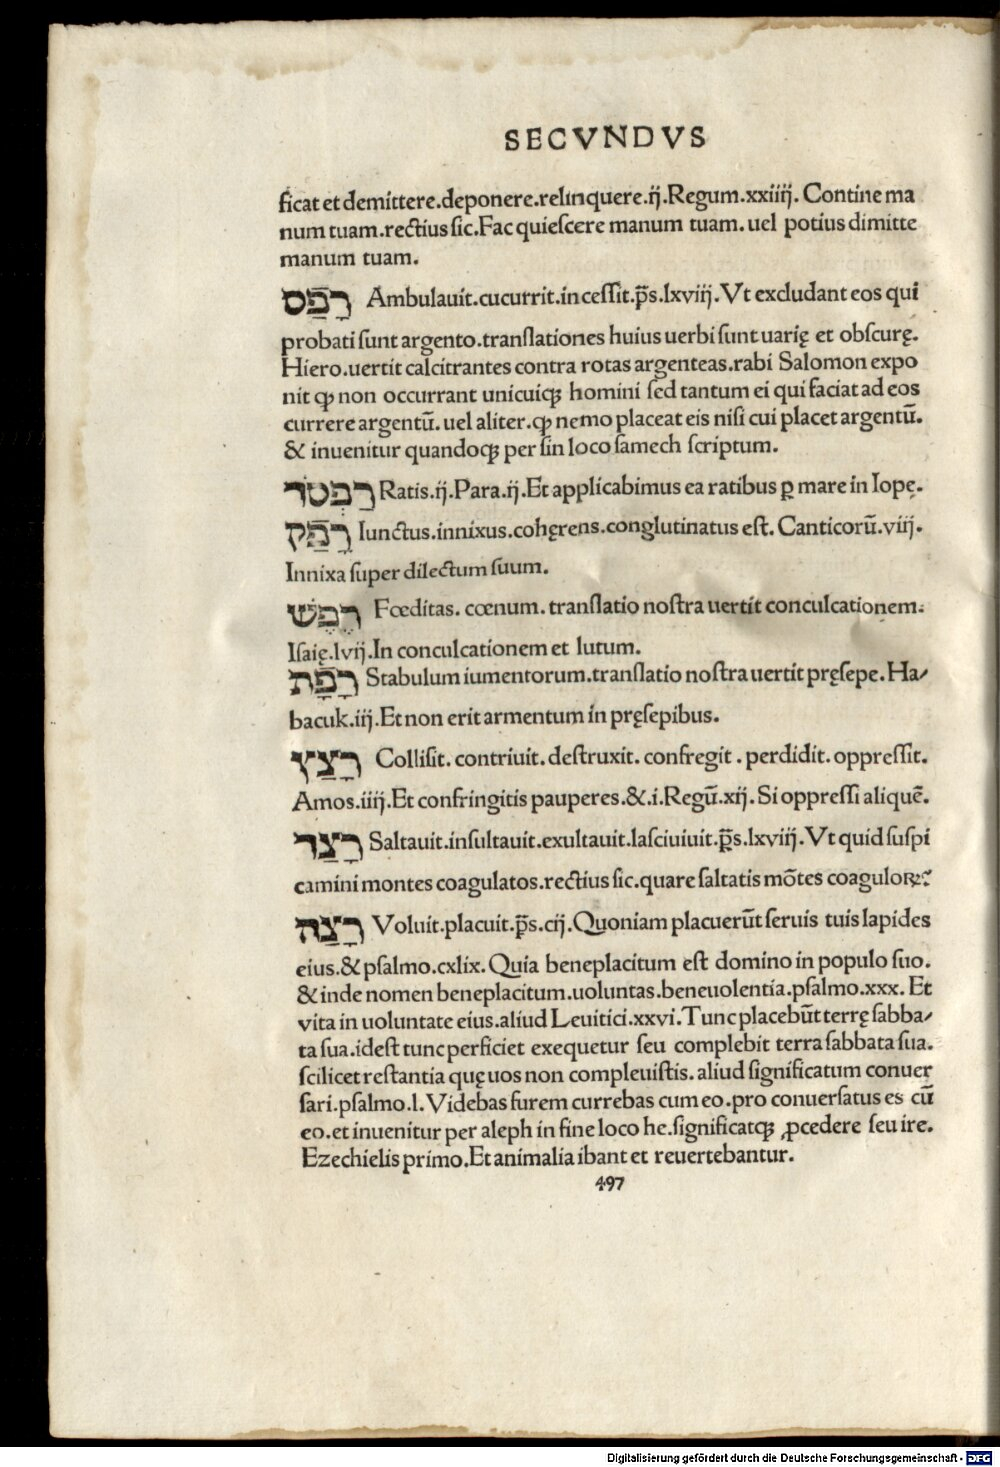 SECVNDVS
ficat et demittere.deponere.relinquere.ij.Regum.xxiiij. Contine ma
num tuam.rectius sic.Fac quiescere manum tuam. uel potius dimitte
manum tuam.
רָפַס Ambulauit.cucurrit.incessit.p̄s.lxviij.Vt excludant eos qui
probati sunt argento.translationes huius uerbi sunt uarię et obscurę.
Hiero.uertit calcitrantes contra rotas argenteas.rabi Salomon expo
nit ꝙ non occurrant unicuiqꝫ homini sed tantum ei qui faciat ad eos
currere argentū. uel aliter.ꝙ nemo placeat eis nisi cui placet argentū.
& inuenitur quandoqꝫ per sin loco samech scriptum.
רַפְסֹד Ratis.ij.Para.ij.Et applicabimus ea ratibus ꝑ mare in Iopę.
רָפַק Iunctus.innixus.cohęrens.conglutinatus est. Canticorū.viij.
Innixa super dilectum suum.
רֶפֶשׁ Fœditas. cœnum. translatio nostra uertit conculcationem.
Isaię.lvij.In conculcationem et lutum.
רָפַת Stabulum iumentorum.translatio nostra uertit pręsepe. Ha/
bacuk.iij.Et non erit armentum in pręsepibus.
רָצַץ Collisit. contriuit. destruxit. confregit . perdidit. oppressit.
Amos.iiij.Et confringitis pauperes.&.i.Regū.xij. Si oppressi aliquē.
רָצַד Saltauit.insultauit.exultauit.lasciuiuit.p̄s.lxviij.Vt quid suspi
camini montes coagulatos.rectius sic.quare saltatis mōtes coaguloꝝ?
רָצָה Voluit.placuit.p̄s.cij.Quoniam placuerūt seruis tuis lapides
eius.& psalmo.cxlix. Quia beneplacitum est domino in populo suo.
& inde nomen beneplacitum.uoluntas.beneuolentia.psalmo.xxx. Et
vita in uoluntate eius.aliud Leuitici.xxvi.Tunc placebūt terrę sabba/
ta sua.idest tunc perficiet exequetur seu complebit terra sabbata sua.
scilicet restantia quę uos non compleuistis. aliud significatum conuer
sari.psalmo.l.Videbas furem currebas cum eo.pro conuersatus es cū
eo.et inuenitur per aleph in fine loco he.significatqꝫ ꝓcedere seu ire.
Ezechielis primo.Et animalia ibant et reuertebantur.
497
Digitalisierung gefördert durch die Deutsche Forschungsgemeinschaft - DFG